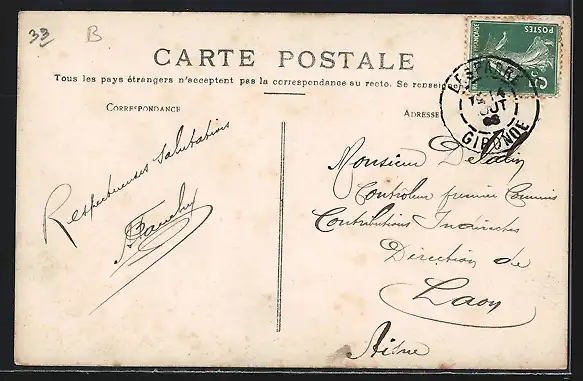 33
B
CARTE POSTALE
Tous les pays étrangers n'acceptent pas la correspondance au recto. Se renseigner
CORRESPONDANCE
ADRESSE
POSTES
5c
LESPARRE
14
OUT
GIRONDE
Respectueuses salutations
Monsieur
Contrôleur premier Commis
Contributions Indirectes
Direction de
Laon
Aisne